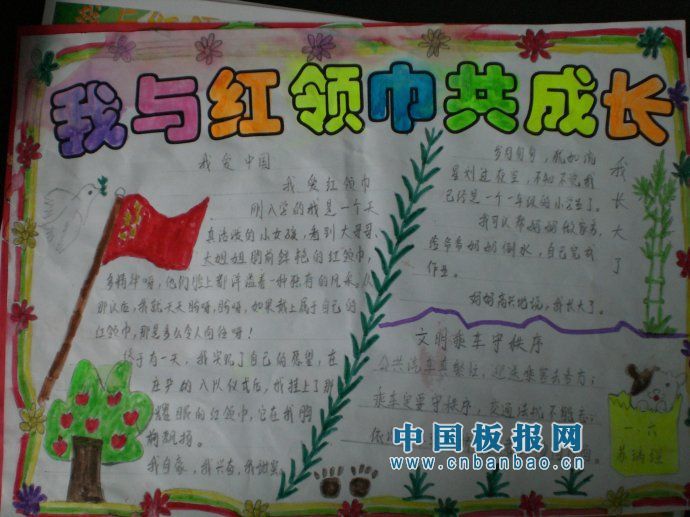 我与红领巾共成长
我爱中国
我爱红领巾
刚入学的我是一个天
真活泼的小女孩,看到大哥哥
大姐姐胸前鲜艳的红领巾,
多精神呀,他们脸上都洋溢着一种独有的风采。从
那以后,我就天天盼呀,盼呀,如果戴上属于自己的
红领巾,那是多么令人向往呀!
终于有一天,我实现了自己的愿望,在
庄严的入队仪式后,我挂上了那
耀眼的红领巾,它在我胸
前飘扬。
我自豪,我兴奋,我甜蜜
我长大了
岁月匆匆,我如流
星划过夜里,不知不觉我
已经是一个一年级的小学生了。
我可以帮妈妈做家务,
给爷爷奶奶倒水,自己完成
作业。
妈妈高兴地说,我长大了。
文明乘车守秩序
公共汽车真整洁,迎送乘客去各方;
乘车定要守秩序,交通法规不能忘;
一.六
中国板报网
www.cnbanbao.cn